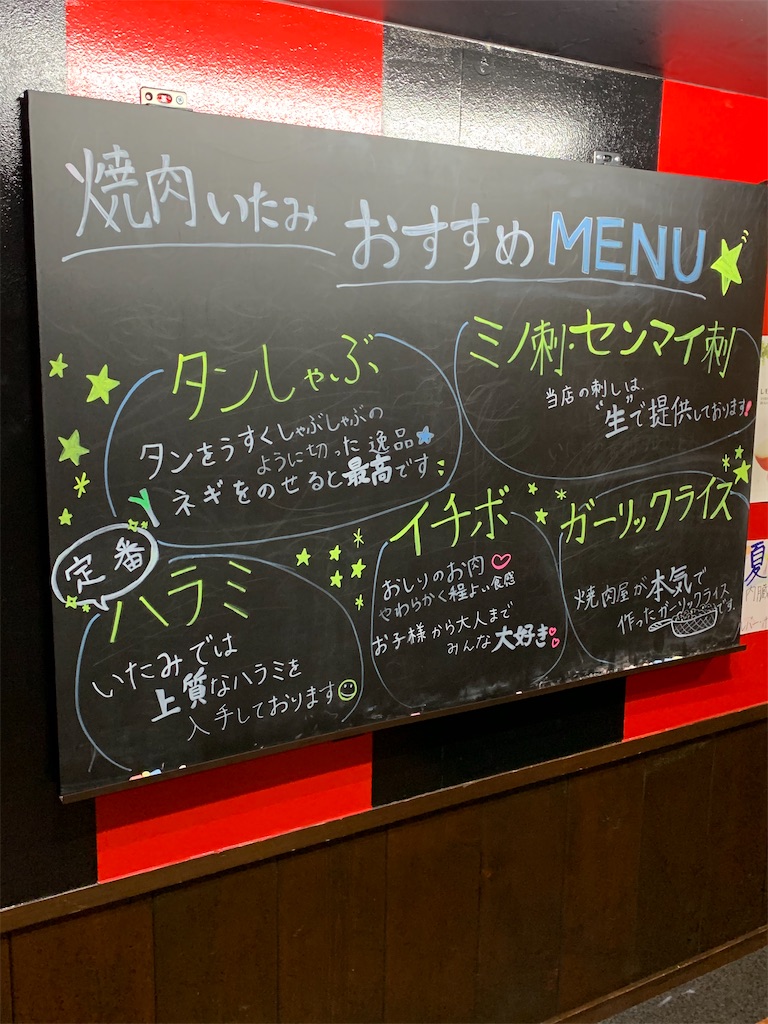 焼肉いたみ
おすすめ MENU
タンしゃぶ
タンをうすくしゃぶしゃぶの
ように切った逸品
ネギをのせると最高です
ミノ刺・センマイ刺
当店の刺しは、
"生"で提供しております!
定番
ハラミ
いたみでは
上質なハラミを
入手しております
イチボ
おしりのお肉
やわらかく程よい食感
お子様から大人まで
みんな大好き
ガーリックライス
焼肉屋が本気で
作ったガーリックライス
です。
夏